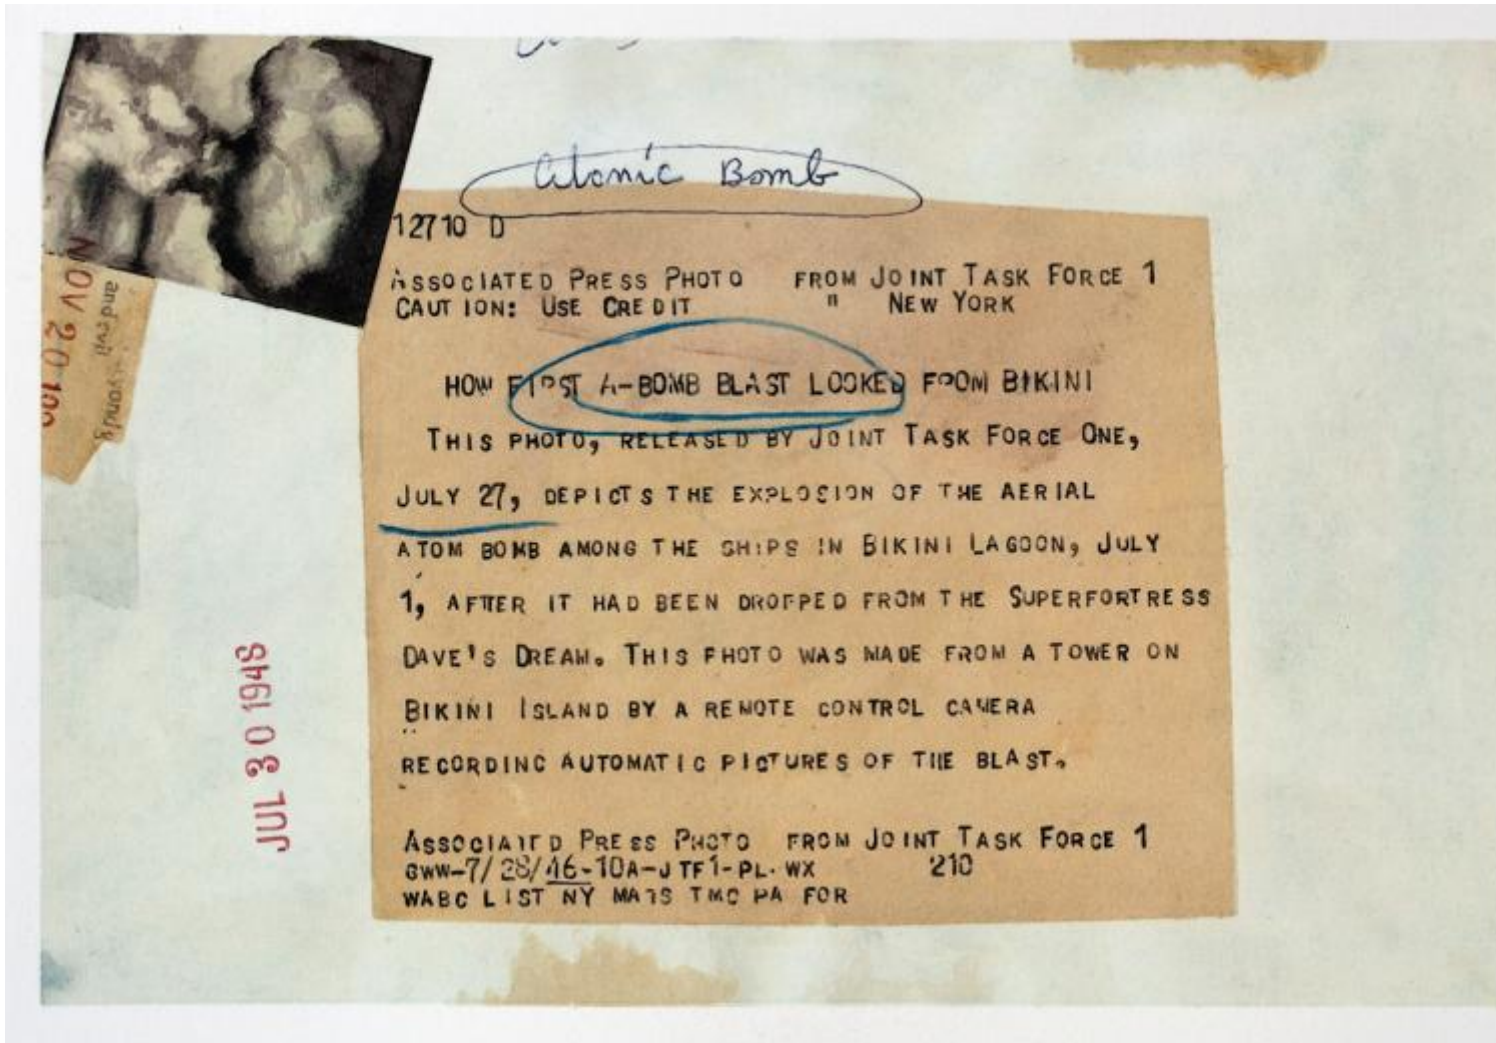 Atomic Bomb
12710 D
ASSOCIATED PRESS PHOTO FROM JOINT TASK FORCE 1
CAUTION: USE CREDIT " NEW YORK
HOW FIRST A-BOMB BLAST LOOKED FROM BIKINI
THIS PHOTO, RELEASED BY JOINT TASK FORCE ONE,
JULY 27, DEPICTS THE EXPLOSION OF THE AERIAL
ATOM BOMB AMONG THE SHIPS IN BIKINI LAGOON, JULY
1, AFTER IT HAD BEEN DROPPED FROM THE SUPERFORTRESS
DAVE'S DREAM. THIS PHOTO WAS MADE FROM A TOWER ON
BIKINI ISLAND BY A REMOTE CONTROL CAMERA
RECORDING AUTOMATIC PICTURES OF THE BLAST.
ASSOCIATED PRESS PHOTO FROM JOINT TASK FORCE 1
GWW-7/28/46-10A-JTF1-PL. WX 210
WABC LIST NY MATS TMC PA FOR
NOV 20
JUL 30 1946